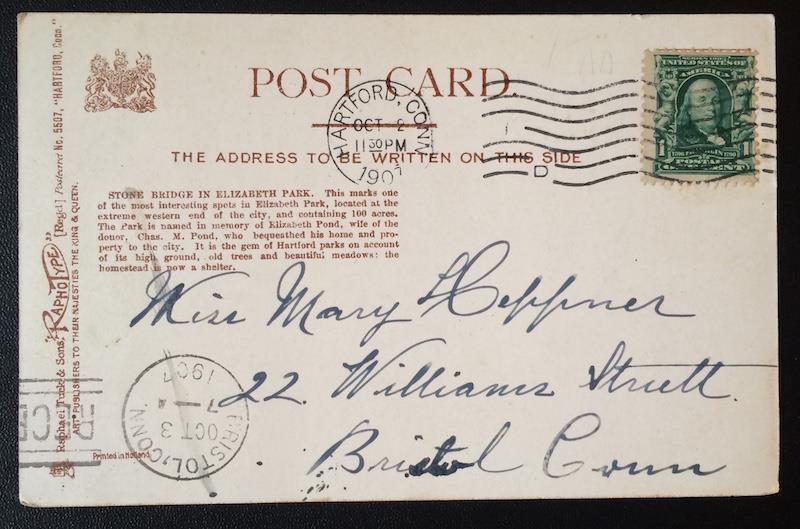 POST CARD.
HARTFORD, CONN.
OCT 2
11 30 PM
1907
D
SERIES 1902
UNITED STATES OF
AMERICA
1 1
POSTAGE
ONE CENT
THE ADDRESS TO BE WRITTEN ON THIS SIDE
STONE BRIDGE IN ELIZABETH PARK. This marks one
of the most interesting spots in Elizabeth Park, located at the
extreme western end of the city, and containing 100 acres.
The Park is named in memory of Elizabeth Pond, wife of the
donor, Chas. M. Pond, who bequeathed his home and pro-
perty to the city. It is the gem of Hartford parks on account
of its high ground, old trees and beautiful meadows: the
homestead is now a shelter.
Miss Mary Heppner
22. Williams Strett.
Bristol Conn
BRISTOL, CONN
OCT 3
7
1907
REC'D
Raphael Tuck & Sons' "RAPHOTYPE" [Regd] Postcard No. 5507, "HARTFORD, Conn."
ART PUBLISHERS TO THEIR MAJESTIES THE KING & QUEEN.
Printed in Holland